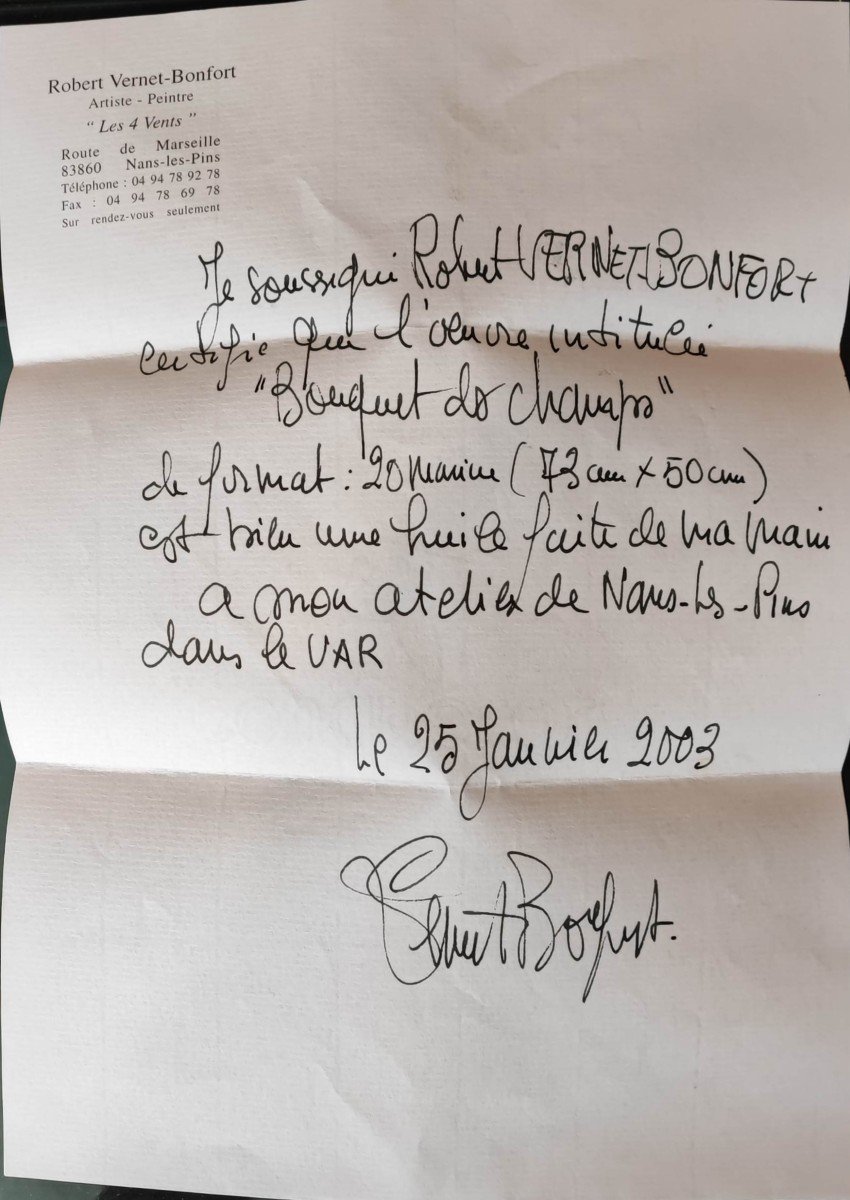 Robert Vernet-Bonfort
Artiste - Peintre
" Les 4 Vents "
Route de Marseille
83860 Nans-les-Pins
Téléphone : 04 94 78 92 78
Fax : 04 94 78 69 78
Sur rendez-vous seulement
Je soussigné Robert VERNET-BONFORT
certifie que l'oeuvre intitulée
"Bouquet des champs"
de format : 20 Marine (73 cm x 50 cm)
est bien une huile faite de ma main
a mon atelier de Nans-les-Pins
dans le VAR
Le 25 Janvier 2003
Vernet Bonfort.